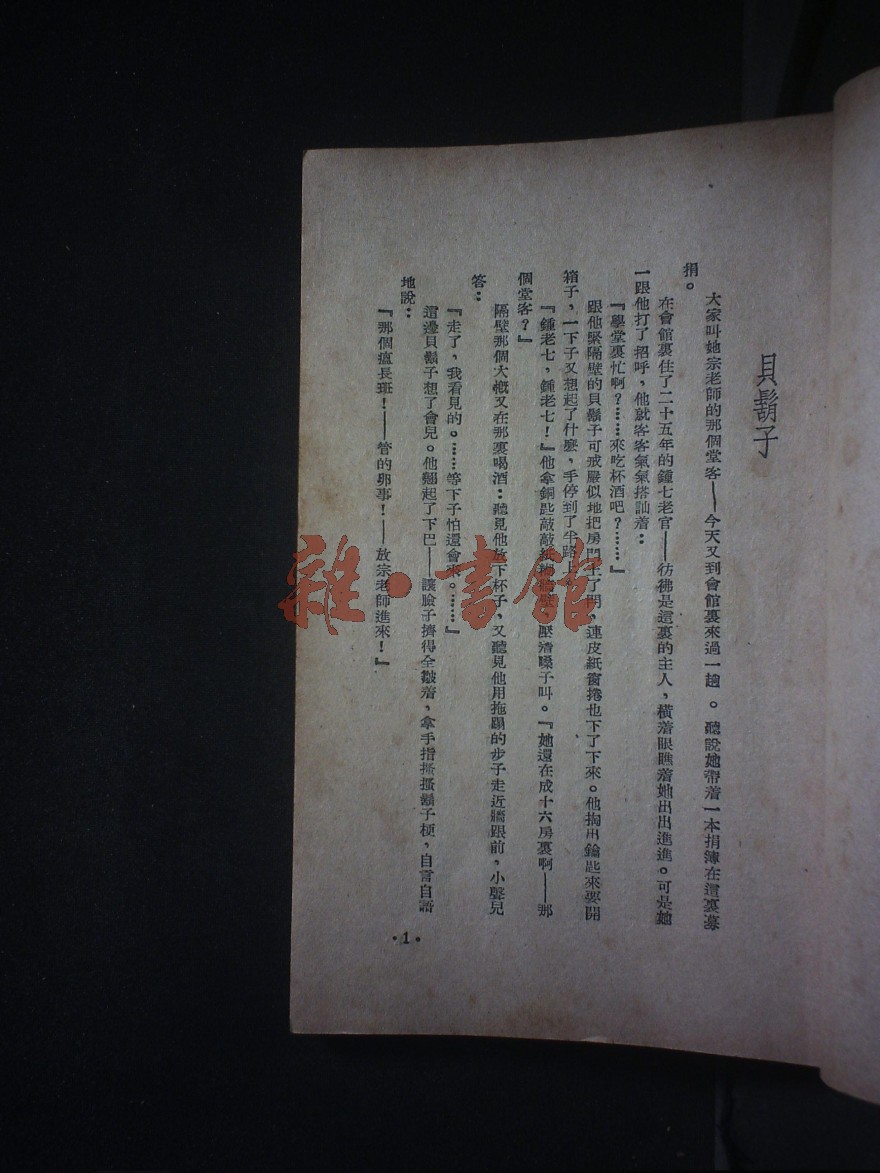 貝鬍子
大家叫她宗老師的那個堂客——今天又到會館裏來過一趟。聽說她帶着一本捐簿在這裏募
捐。
在會館裏住了二十五年的鍾七老官——彷彿是這裏的主人,橫着眼瞧着她出出進進。可是她
一跟他打了招呼,他就客客氣氣搭訕着:
『學堂裏忙啊?……來吃杯酒吧?……』
跟他緊隔壁的貝鬍子可戒嚴似地把房門上了閂,連皮紙窗捲也下了下來。他掏出鑰匙來要開
箱子,一下子又想起了什麼,手停到了半路上。
『鍾老七,鍾老七!』他拿銅匙敲敲紙糊牆壁,壓着嗓子叫。『她還在成十六房裏啊——那
個堂客?』
隔壁那個大概又在那裏喝酒:聽見他放下杯子,又聽見他用拖蹋的步子走近牆跟前,小聲兒
答:
『走了,我看見的。……等下子怕還會來。……』
這邊貝鬍子想了會兒。他翹起了下巴——讓臉子擠得全皺着,拿手指搔搔鬍子梗,自言自語
地說:
『那個瘟長班!——管的卵事!——放宗老師進來!』
·1·
雜·書館